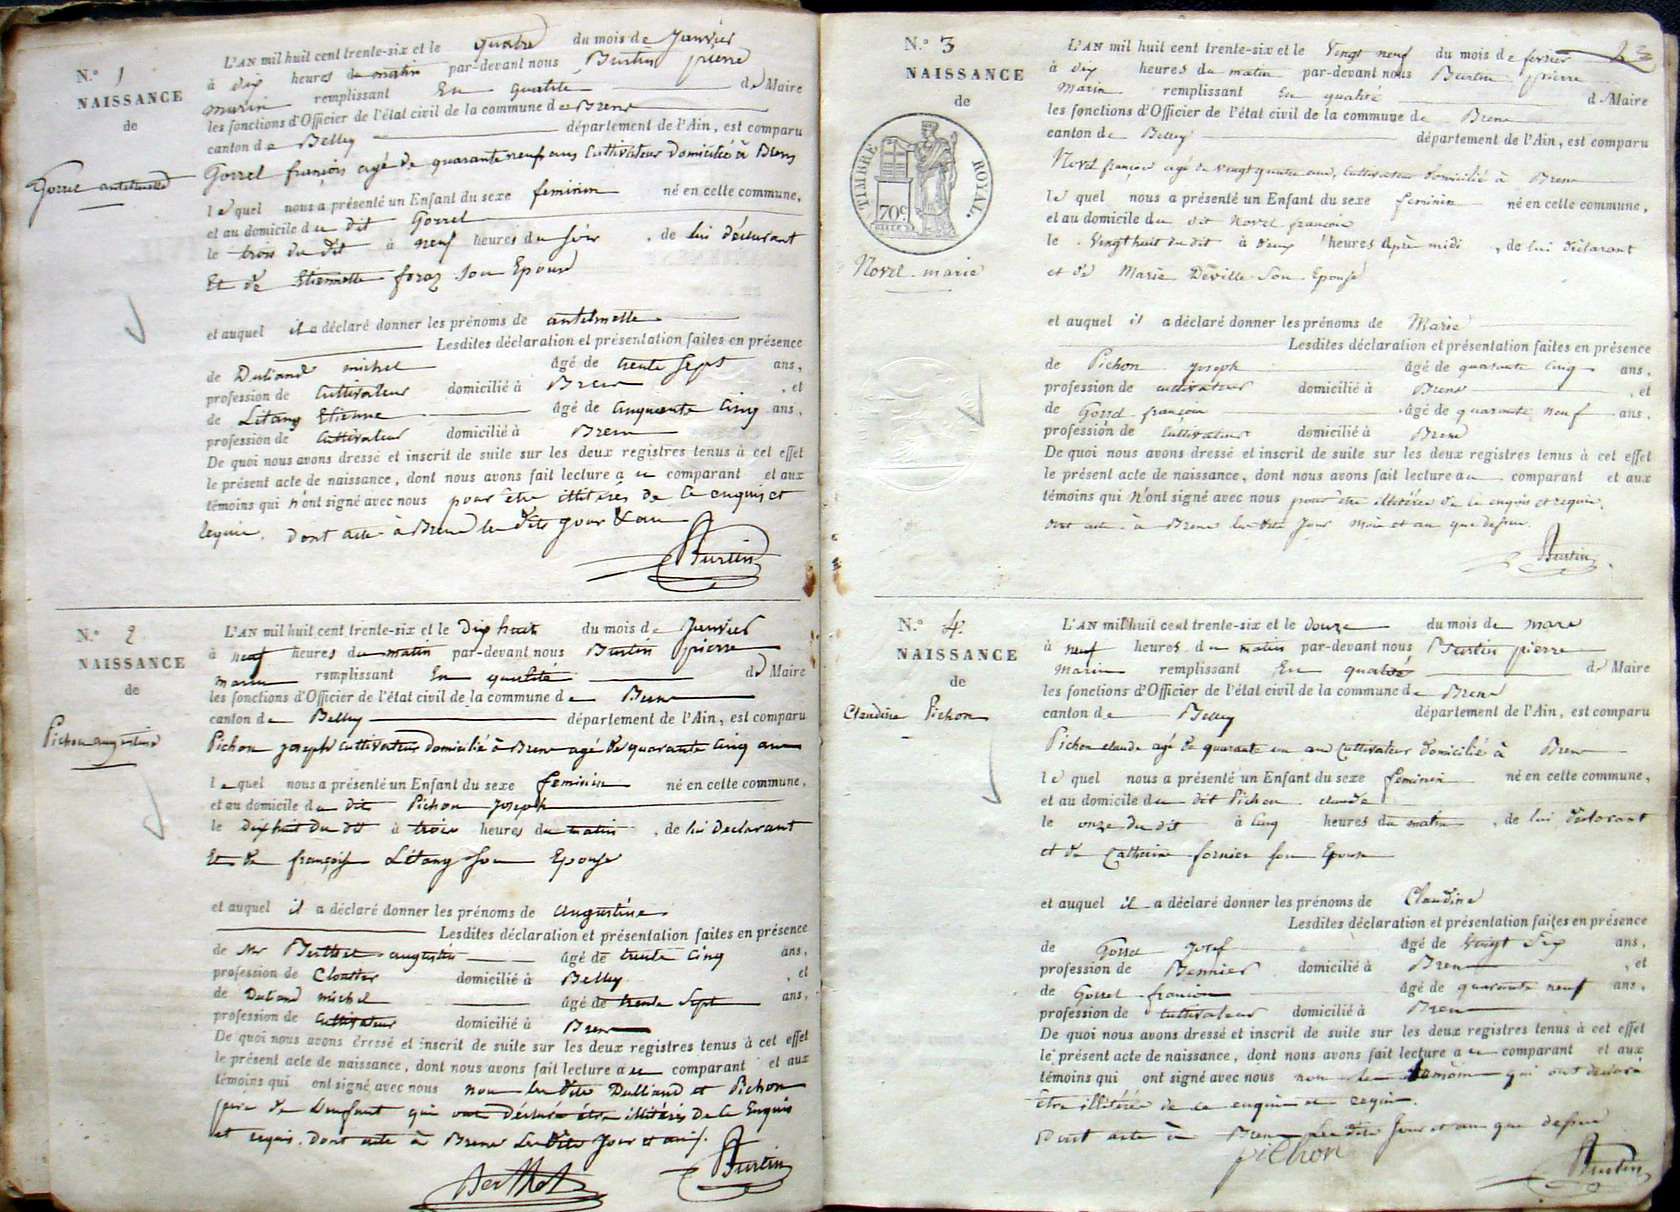 N.° 1
NAISSANCE
de
Gorrel antelmette
L'AN mil huit cent trente-six et le quatre du mois de Janvier
à dix heures du matin par-devant nous Burtin pierre
marin remplissant En qualité de Maire
les fonctions d'Officier de l'état civil de la commune de Brens
canton de Belley département de l'Ain, est comparu
Gorrel françois agé de quarante neuf ans Cultivateur domicilié à Brens
lequel nous a présenté un Enfant du sexe feminin né en cette commune,
et au domicile du dit Gorrel
le trois du dit à neuf heures du soir, de lui déclarant
Et de Etiennette foraz son Epouse
et auquel il a déclaré donner les prénoms de antelmette
Lesdites déclaration et présentation faites en présence
de Duliand michel âgé de trente sept ans,
profession de Cultivateur domicilié à Brens, et
de Litany Etienne âgé de Cinquante Cinq ans,
profession de Cultivateur domicilié à Brens
De quoi nous avons dressé et inscrit de suite sur les deux registres tenus à cet effet
le présent acte de naissance, dont nous avons fait lecture au comparant et aux
témoins qui n'ont signé avec nous pour être illitérés de ce enquis et
requis. Dont acte à Brens les dits jour & an
Burtin
N.° 2
NAISSANCE
de
Pichon augustine
L'AN mil huit cent trente-six et le dix huit du mois de Janvier
à neuf heures du matin par-devant nous Burtin pierre
marin remplissant En qualité de Maire
les fonctions d'Officier de l'état civil de la commune de Brens
canton de Belley département de l'Ain, est comparu
Pichon joseph Cultivateur domicilié à Brens agé de quarante Cinq ans
lequel nous a présenté un Enfant du sexe feminin né en cette commune,
et au domicile du dit Pichon joseph
le dix huit du dit à trois heures du matin, de lui Declarant
Et de françoise Litany son Epouse
et auquel il a déclaré donner les prénoms de augustine
Lesdites déclaration et présentation faites en présence
de Mr Berthet augustin âgé de trente Cinq ans,
profession de Cloutier domicilié à Belley, et
de Duliand michel âgé de trente sept ans,
profession de Cultivateur domicilié à Brens
De quoi nous avons dressé et inscrit de suite sur les deux registres tenus à cet effet
le présent acte de naissance, dont nous avons fait lecture au comparant et aux
témoins qui ont signé avec nous non les dits Dulliand et Pichon
père de l'enfant qui ont déclaré être illitérés De Ce Enquis
et requis. Dont acte à Brens les dits jour et an
Berthet
Burtin
N.° 3
NAISSANCE
de
TIMBRE ROYAL.
70c
Novel marie
L'AN mil huit cent trente-six et le vingt neuf du mois de fevrier
à dix heures du matin par-devant nous Burtin pierre
marin remplissant En qualité de Maire
les fonctions d'Officier de l'état civil de la commune de Brens
canton de Belley département de l'Ain, est comparu
Novel françois agé de vingt quatre ans, Cultivateur domicilié à Brens
lequel nous a présenté un Enfant du sexe feminin né en cette commune,
et au domicile du dit Novel françois
le vingt huit du dit à deux heures après midi, de lui déclarant
et de Marie Deville son Epouse
et auquel il a déclaré donner les prénoms de Marie
Lesdites déclaration et présentation faites en présence
de Pichon joseph âgé de quarante Cinq ans,
profession de cultivateur domicilié à Brens, et
de Gorrel françois âgé de quarante neuf ans,
profession de Cultivateur domicilié à Brens
De quoi nous avons dressé et inscrit de suite sur les deux registres tenus à cet effet
le présent acte de naissance, dont nous avons fait lecture au comparant et aux
témoins qui n'ont signé avec nous pour être illitérés de ce enquis et requis,
dont acte à Brens les dits jour mois et an que dessus
Burtin
N.° 4
NAISSANCE
de
Claudine Pichon
L'AN mil huit cent trente-six et le douze du mois de mars
à neuf heures du matin par-devant nous Burtin pierre
marin remplissant En qualité de Maire
les fonctions d'Officier de l'état civil de la commune de Brens
canton de Belley département de l'Ain, est comparu
Pichon claude agé de quarante un ans Cultivateur domicilié à Brens
lequel nous a présenté un Enfant du sexe feminin né en cette commune,
et au domicile du dit Pichon claude
le onze du dit à Cinq heures du matin, de lui déclarant
et de Catherine fornier son Epouse
et auquel il a déclaré donner les prénoms de Claudine
Lesdites déclaration et présentation faites en présence
de Gorrel josef âgé de vingt Six ans,
profession de domicilié à Brens, et
de Gorrel françois âgé de quarante neuf ans,
profession de Cultivateur domicilié à Brens
De quoi nous avons dressé et inscrit de suite sur les deux registres tenus à cet effet
le présent acte de naissance, dont nous avons fait lecture au comparant et aux
témoins qui ont signé avec nous non les témoins qui ont déclaré
être illitérés de ce enquis et requis.
Dont acte à Brens les dits jour et an que dessus
pichon
Burtin